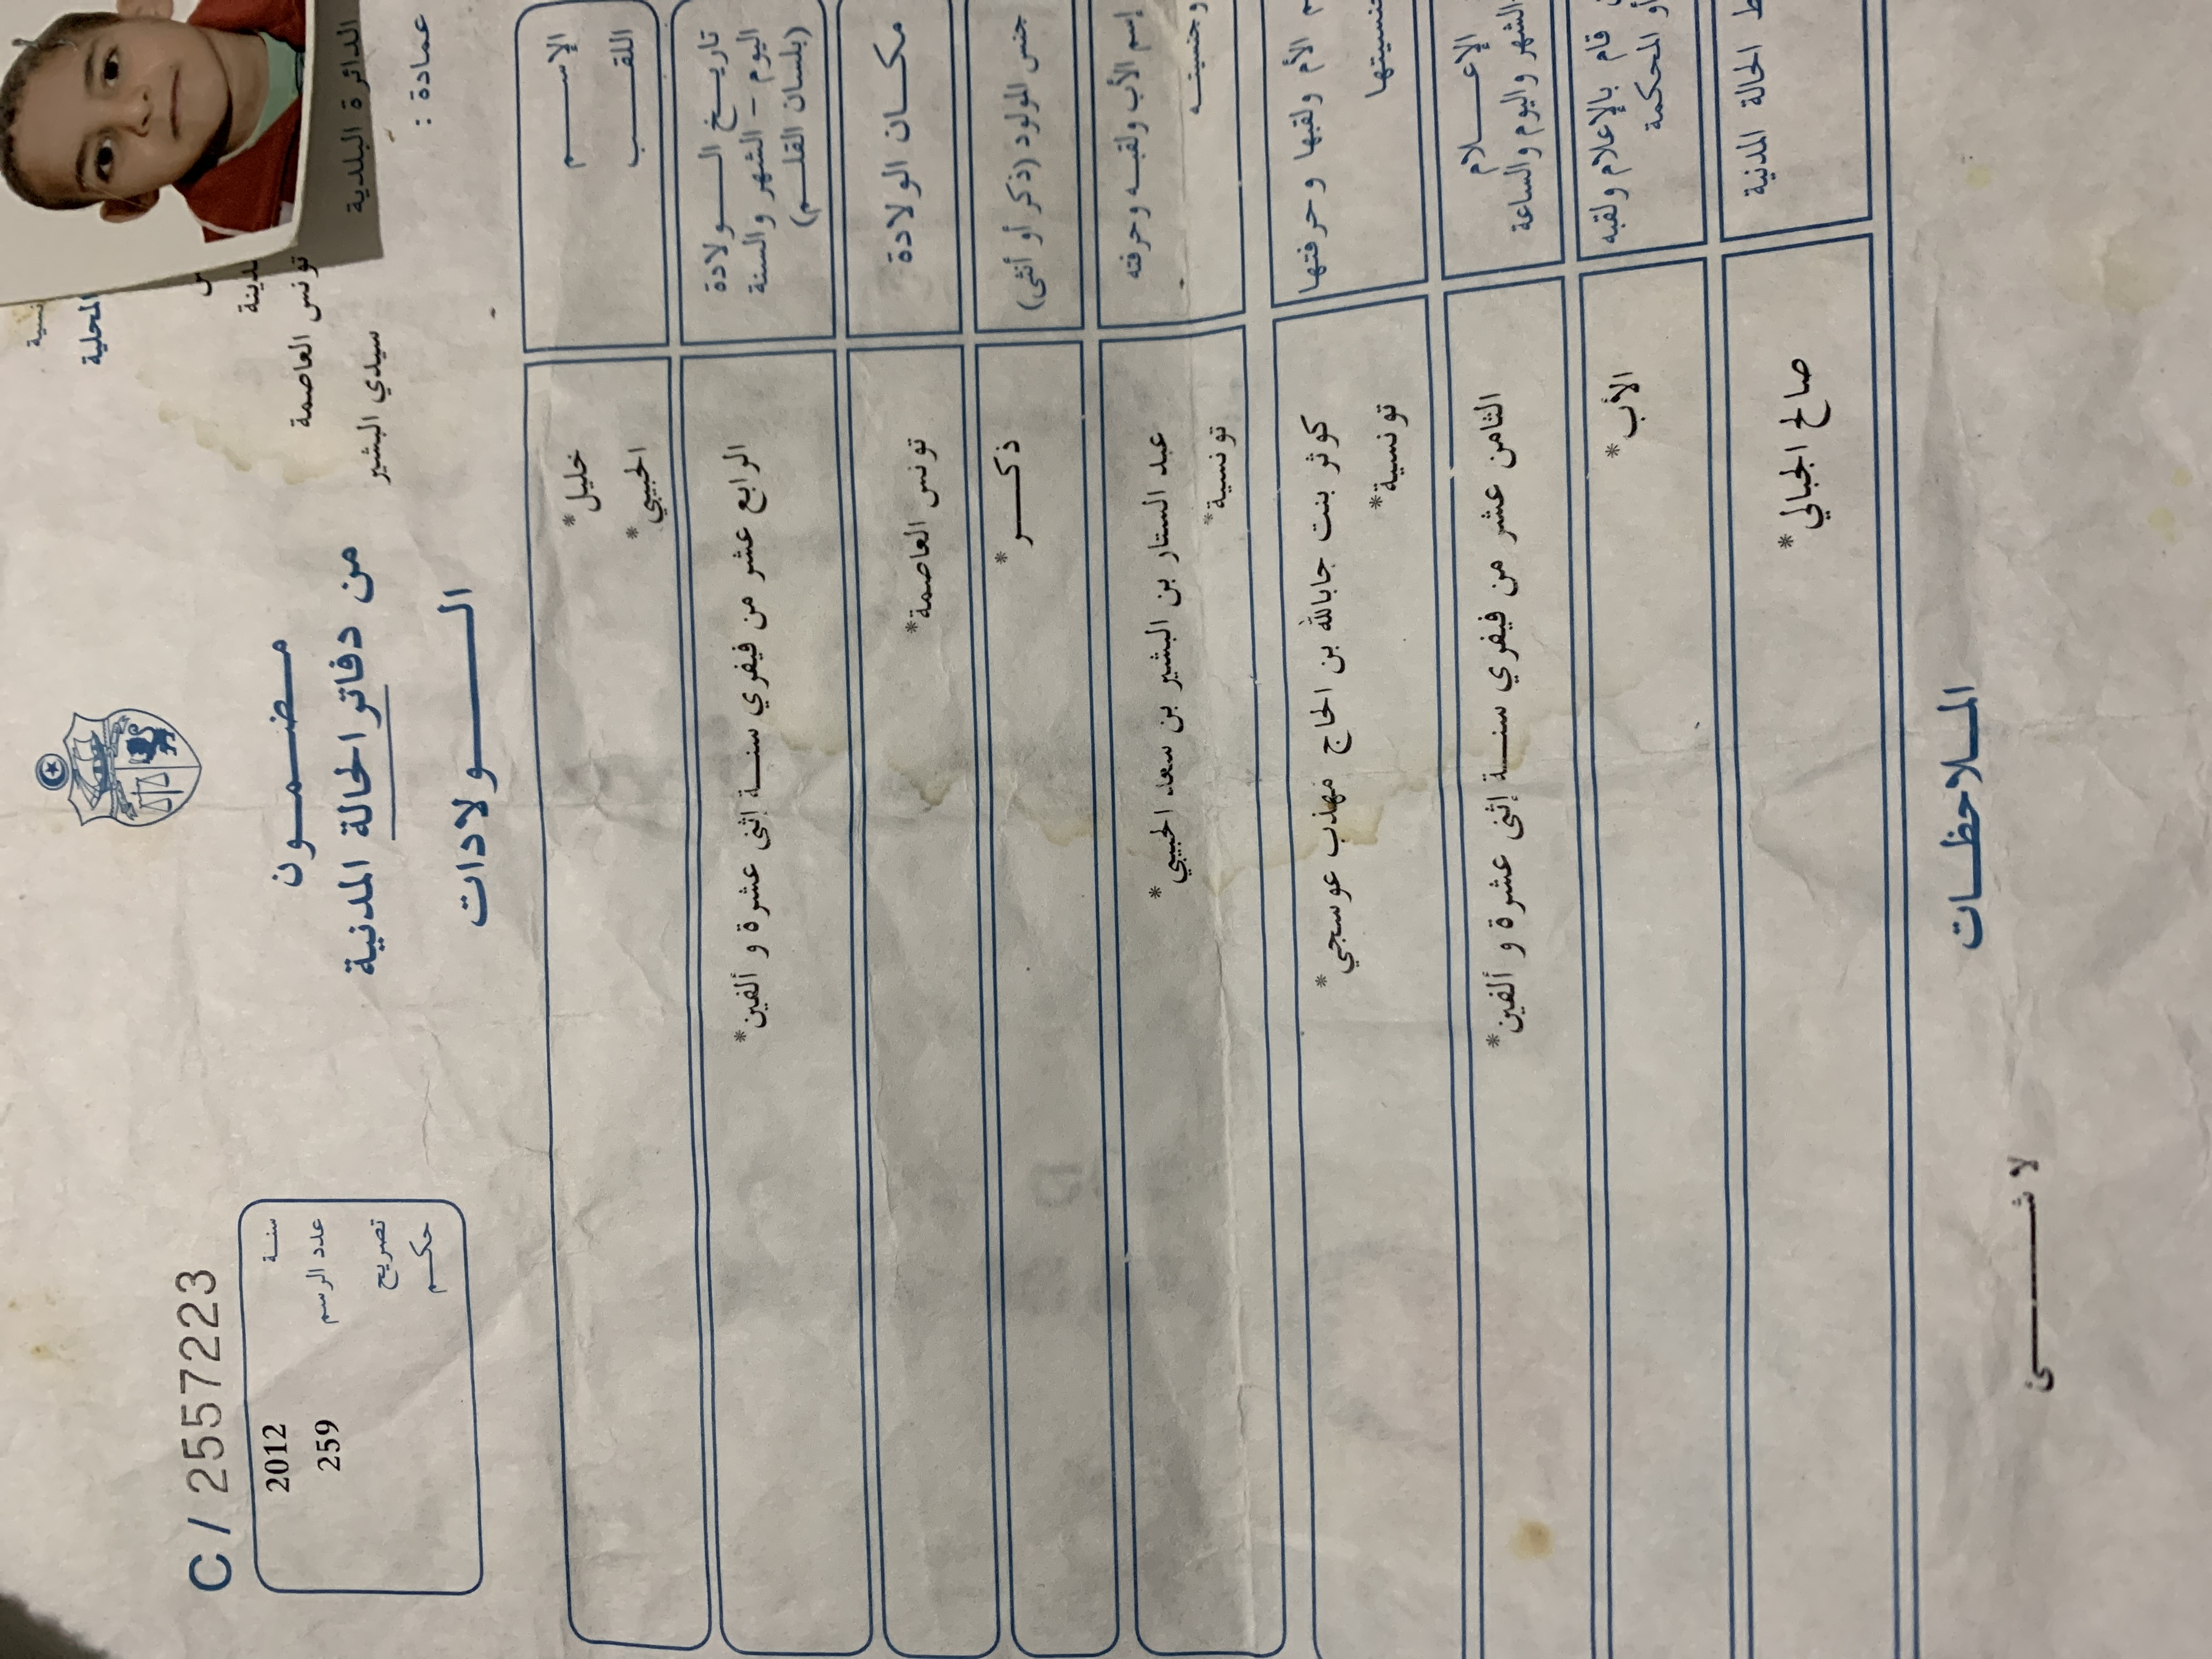 المحلية
تونس العاصمة
الدائرة البلدية سيدي البشير
عمادة :
C / 2557223
سنة 2012
عدد الرسم 259
تصريح
حكم
مضمون
من دفاتر الحالة المدنية
الولادات
الإسم خليل*
اللقب الحبيبي*
تاريخ الولادة
اليوم - الشهر والسنة
(بلسان القلم)
الرابع عشر من فيفري سنة إثنى عشرة و ألفين*
مكان الولادة تونس العاصمة*
جنس المولود (ذكر أو أنثى) ذكر*
إسم الأب ولقبه وحرفته
وجنسيته
عبد الستار بن البشير بن سعد الحبيبي*
تونسية*
الأم ولقبها وحرفتها
كوثر بنت جابالله بن الحاج مهذب عوسجي*
تونسية*
الإعلام
الشهر واليوم والساعة
الثامن عشر من فيفري سنة إثنى عشرة و ألفين*
قام بالإعلام ولقبه
أو المحكمة
الأب*
الحالة المدنية
صالح الجبالي*
الملاحظات
لا شئ